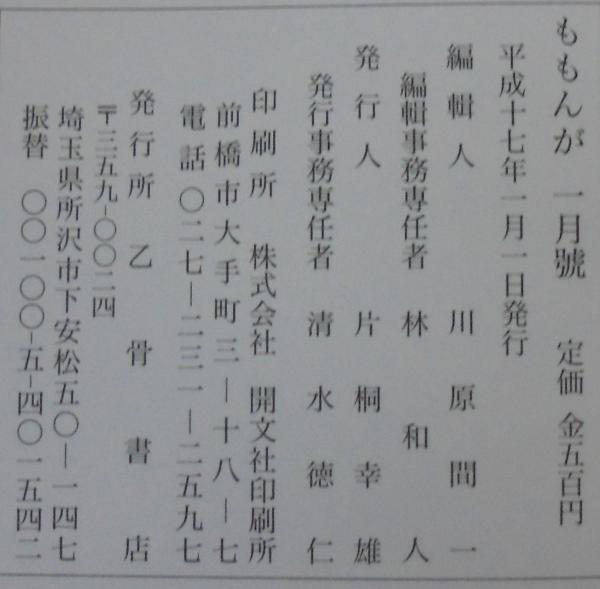 ももんが 一月號 定価 金五百円
平成十七年一月一日発行
編輯人 川原間一
編輯事務専任者 林和人
発行人 片桐幸雄
発行事務専任者 清水徳仁
印刷所 株式会社 開文社印刷所
前橋市大手町三―十八―七
電話〇二七―二三一―二五九七
発行所 乙骨書店
〒三五九-〇〇二四
埼玉県所沢市下安松五〇―一四七
振替 〇〇一〇〇-五-四〇一五四二